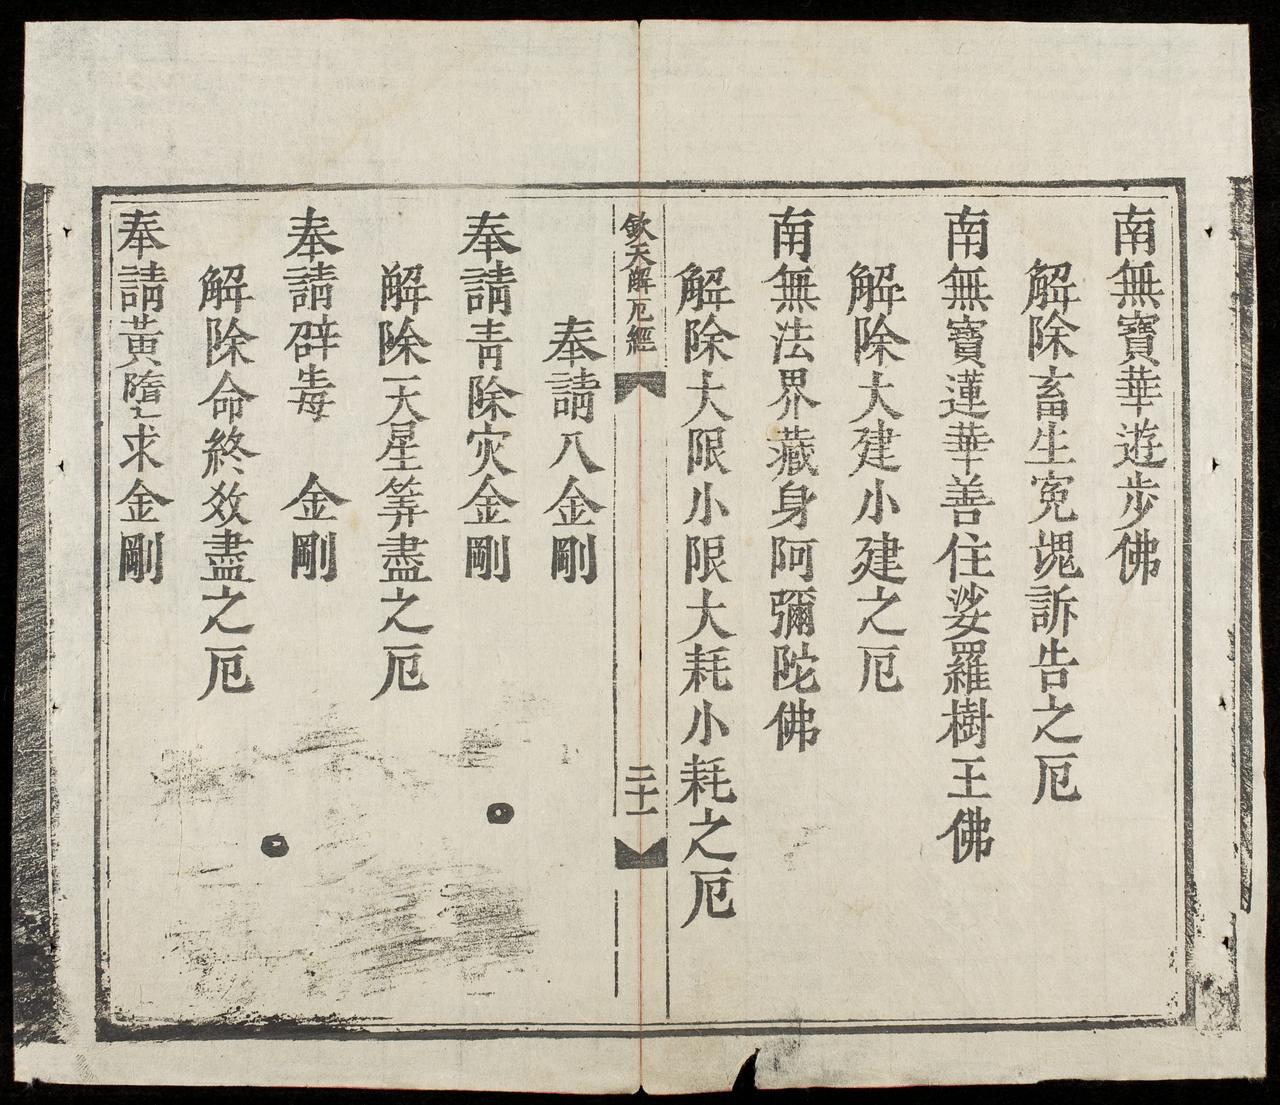 南無寶華遊步佛
解除畜生寃愧訴告之厄
南無寶蓮華善住娑羅樹王佛
解除大建小建之厄
南無法界藏身阿彌陀佛
解除大限小限大耗小耗之厄
欽天解厄經
二十一
奉請八金剛
奉請青除灾金剛
解除天星筭盡之厄
奉請辟毒 金剛
解除命終效盡之厄
奉請黃隨求金剛